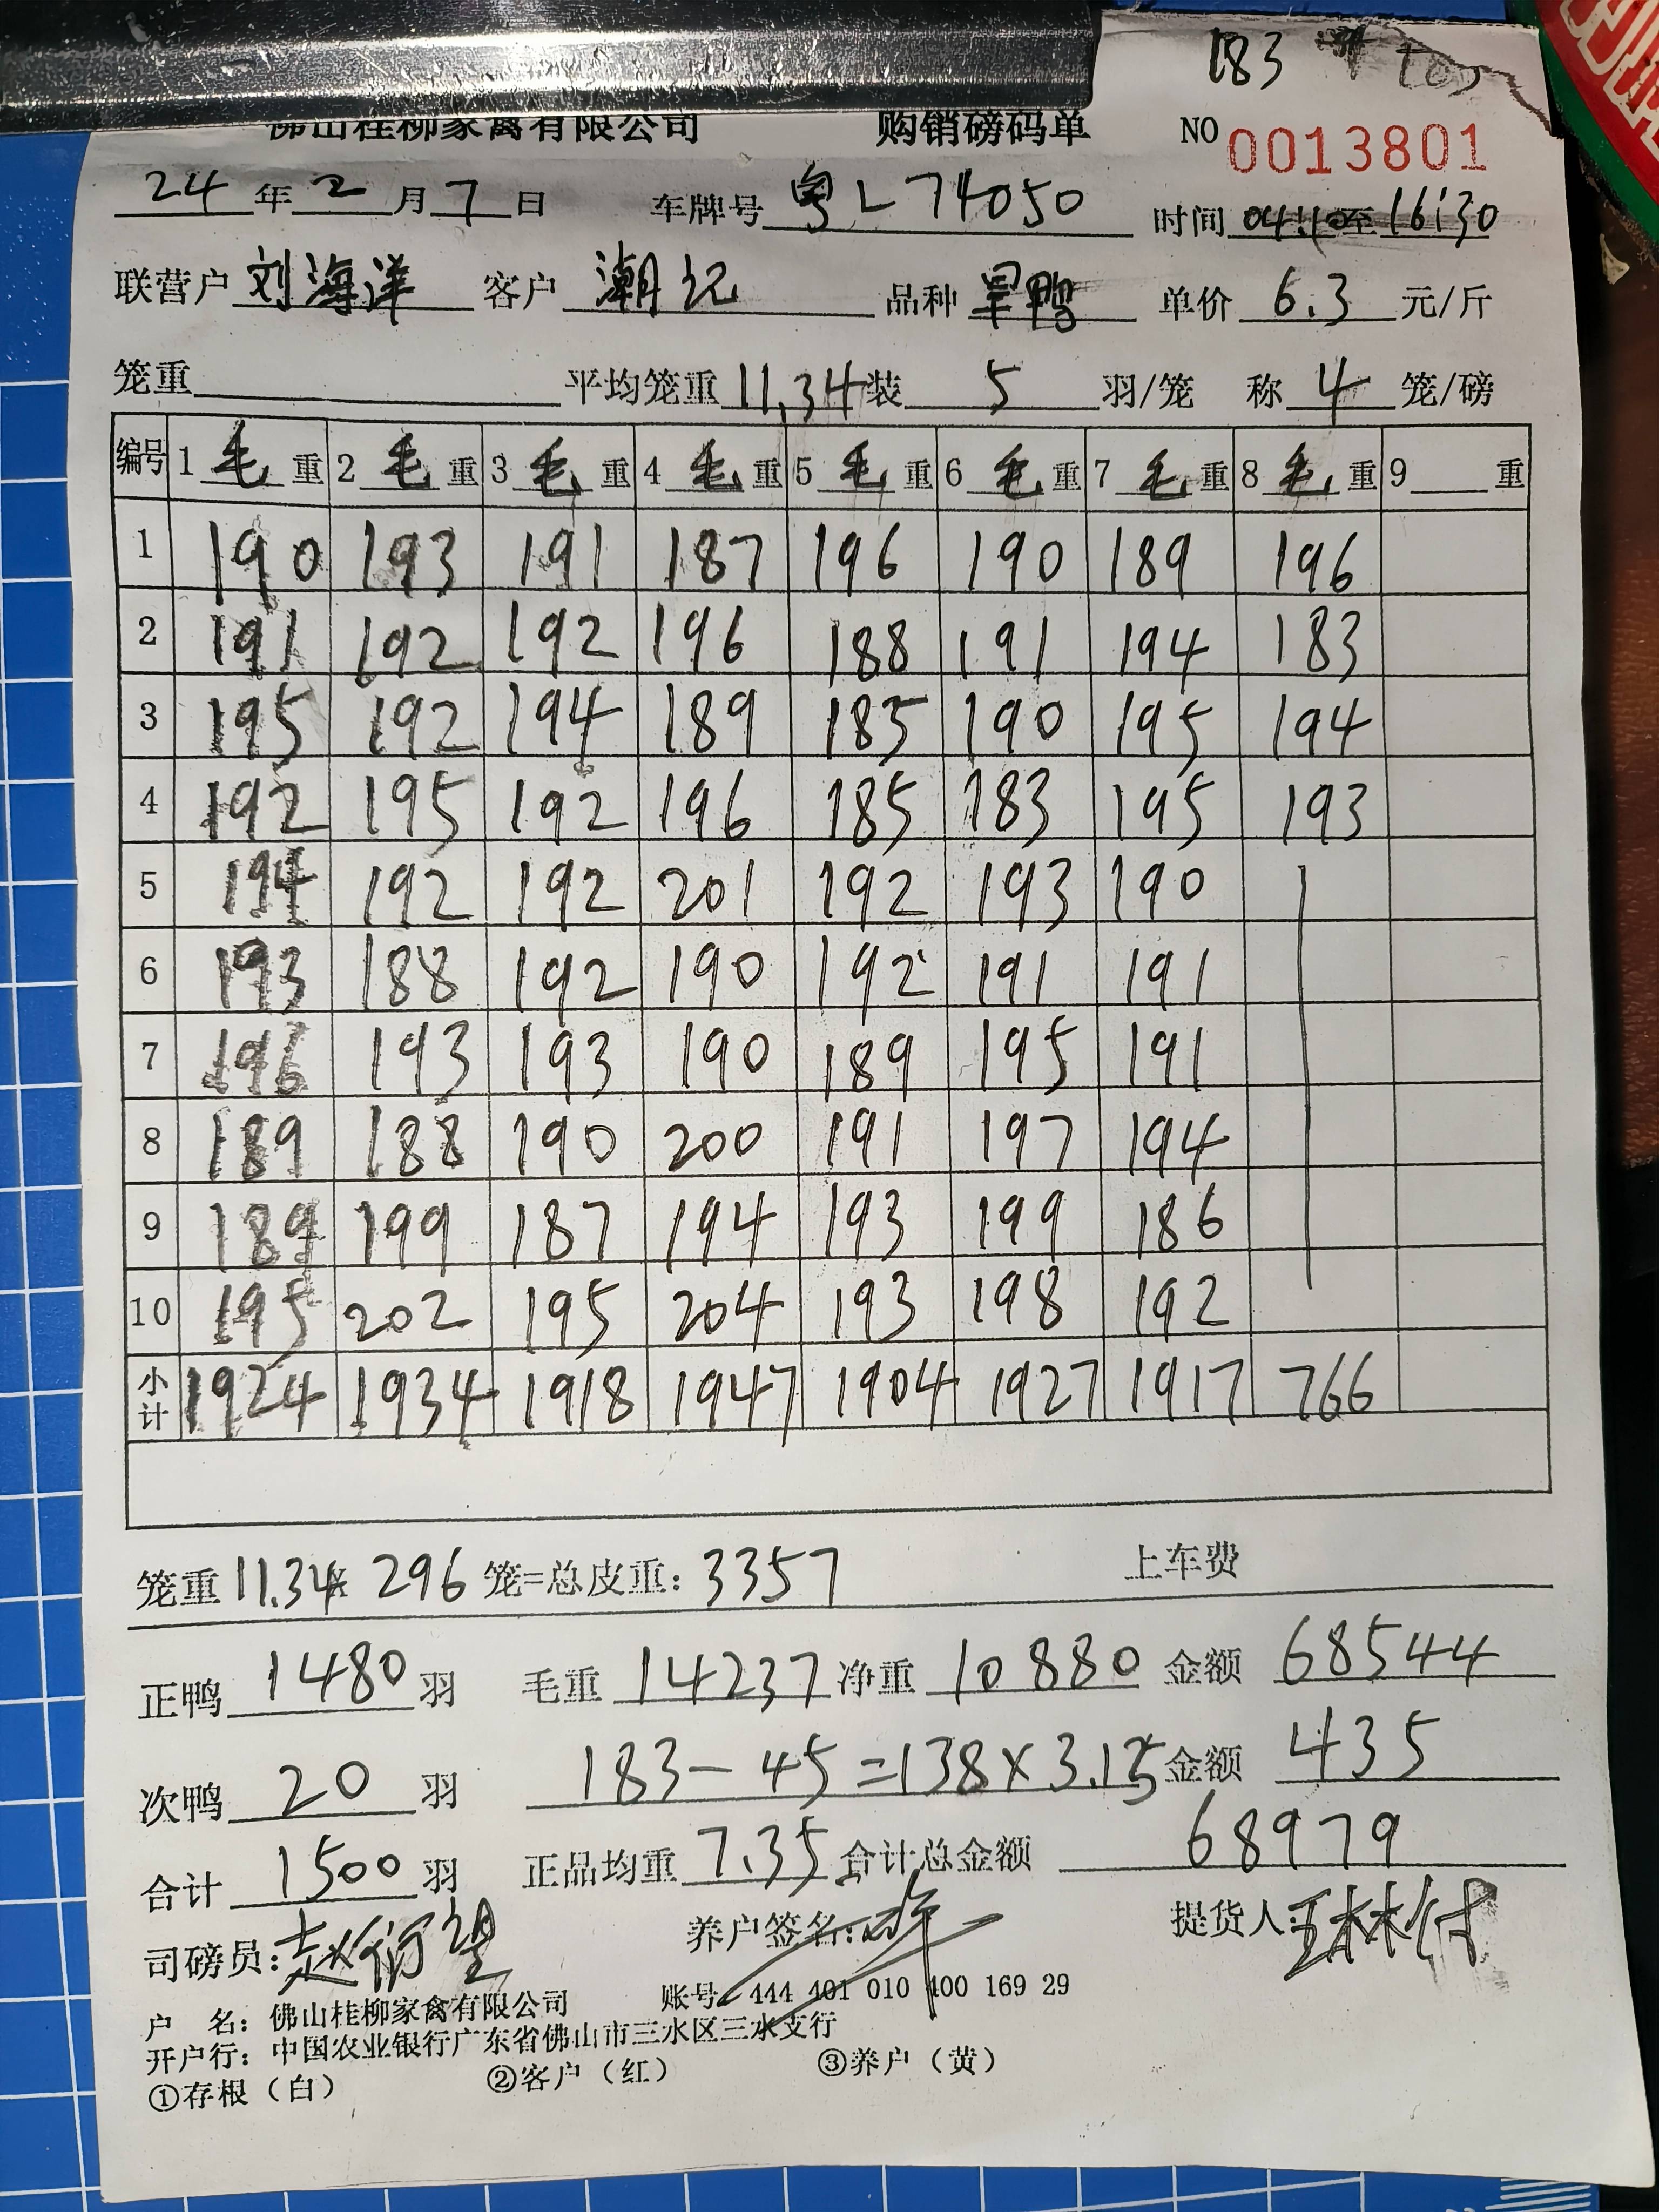 183
佛山桂柳家禽有限公司 购销磅码单 NO 0013801
24年2月7日 车牌号 粤L74050 时间 04:10至16:30
联营户 刘海洋 客户 潮记 品种 旱鸭 单价 6.3 元/斤
笼重 平均笼重 11.34 装 5 羽/笼 称 4 笼/磅
编号 1 毛 重 2 毛 重 3 毛 重 4 毛 重 5 毛 重 6 毛 重 7 毛 重 8 毛 重 9 重
1 190 193 191 187 196 190 189 196
2 191 192 192 196 188 191 194 183
3 195 192 194 189 185 190 195 194
4 192 195 192 196 185 183 195 193
5 194 192 192 201 192 193 190
6 193 188 192 190 192 191 191
7 196 193 193 190 189 195 191
8 189 188 190 200 191 197 194
9 189 199 187 194 193 199 186
10 195 202 195 204 193 198 192
小计 1924 1934 1918 1947 1904 1927 1917 766
笼重 11.34 × 296 笼=总皮重: 3357 上车费
正鸭 1480 羽 毛重 14237 净重 10880 金额 68544
次鸭 20 羽 183-45=138×3.15 金额 435
合计 1500 羽 正品均重 7.35 合计总金额 68979
司磅员: 养户签名: 提货人:
户 名: 佛山桂柳家禽有限公司 账号 444 401 010 400 169 29
开户行: 中国农业银行广东省佛山市三水区三水支行
①存根（白） ②客户（红） ③养户（黄）